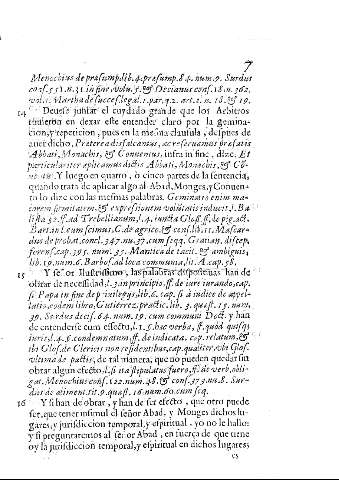 7
Menochius de præsump. lib. 4. præsump. 84. num. 9. Surdus
conf. 551. n. 31. in fine, volu. 5. & Decianus conf. 18. n. 362.
vol. 1. Martha de succes. legal. 1. par. q. 2. art. 1. n. 18. & 19.
14 Deuese juntar el cuydado grande que los Arbitros
tuuieron en dexar este entender claro por la gemina-
cion, y repeticion, pues en la mesma clausula, despues de
auer dicho, Præterea disfalcamus, ac reseruamus præfatis
Abbati, Monachis, & Conuentui, infra in fine, dize, Et
particulariter aplicamus dictis Abbati, Monachis, & Cõ-
Y luego en quatro, ò cinco partes de la sentencia,
quando trata de aplicar algo al Abad, Monges, y Conuen-
to lo dize con las mesmas palabras. Geminatio enim ma-
iorem firmitatem, & expressionem voluntatis inducit, l. Ba-
lista 32. ff. ad Trebellianum, l. 4. iuncta Glos. ff. de pig. act.
Bart. in l. cum scimus, C. de agric. & cens. lib. 11. Mascar-
dus de probat. concl. 347. nu. 37. cum seqq. Gratian. discep.
forens. cap. 395. num. 33. Mantica de tacit. & ambiguis,
lib. 10. num. 6. Barbos. ad loca communia, lit. A. cap. 58.
15 Y señor Ilustrissimo, las palabras dispositiuas han de
obrar de necesidad, l. 3. in principio, ff. de iure iurando, cap.
si Papa in fine de priuilegijs, lit. 6. cap. si à iudice de appel-
lat. eodem libro, Gutierrez, practic. lib. 3. quæst. 15. num.
39. Surdus decis. 64. num. 19. cum communi Doct. y han
de entenderse cum effectu, l. 1. §. hæc verba, ff. quod quisq;
iuris, l. 4. §. condemnatum, ff. de iudicata, cap. relatum, &
ibi Glos. de Clericis non residentibus, cap. qualiter, vbi Glos.
vltima de pactis, de tal manera, que no pueden quedar sin
obrar algun efecto, l. si ita stipulatus fuero, ff. de verb. obli-
gat. Menochius conf. 122. num. 48. & conf. 373. nu. 8. Sur-
dus de aliment. tit. 9. quæst. 16. num. 60. cum seq.
16 Y si han de obrar, y han de ser efecto, que otro puede
ser, que tener insimul el señor Abad, y Monges dichos lu-
gares, y jurisdiccion temporal, y espiritual, yo no le hallo:
y si preguntaremos al señor Abad, en fuerça de que tiene
oy la jurisdiccion temporal, y espiritual en dichos lugares;
es